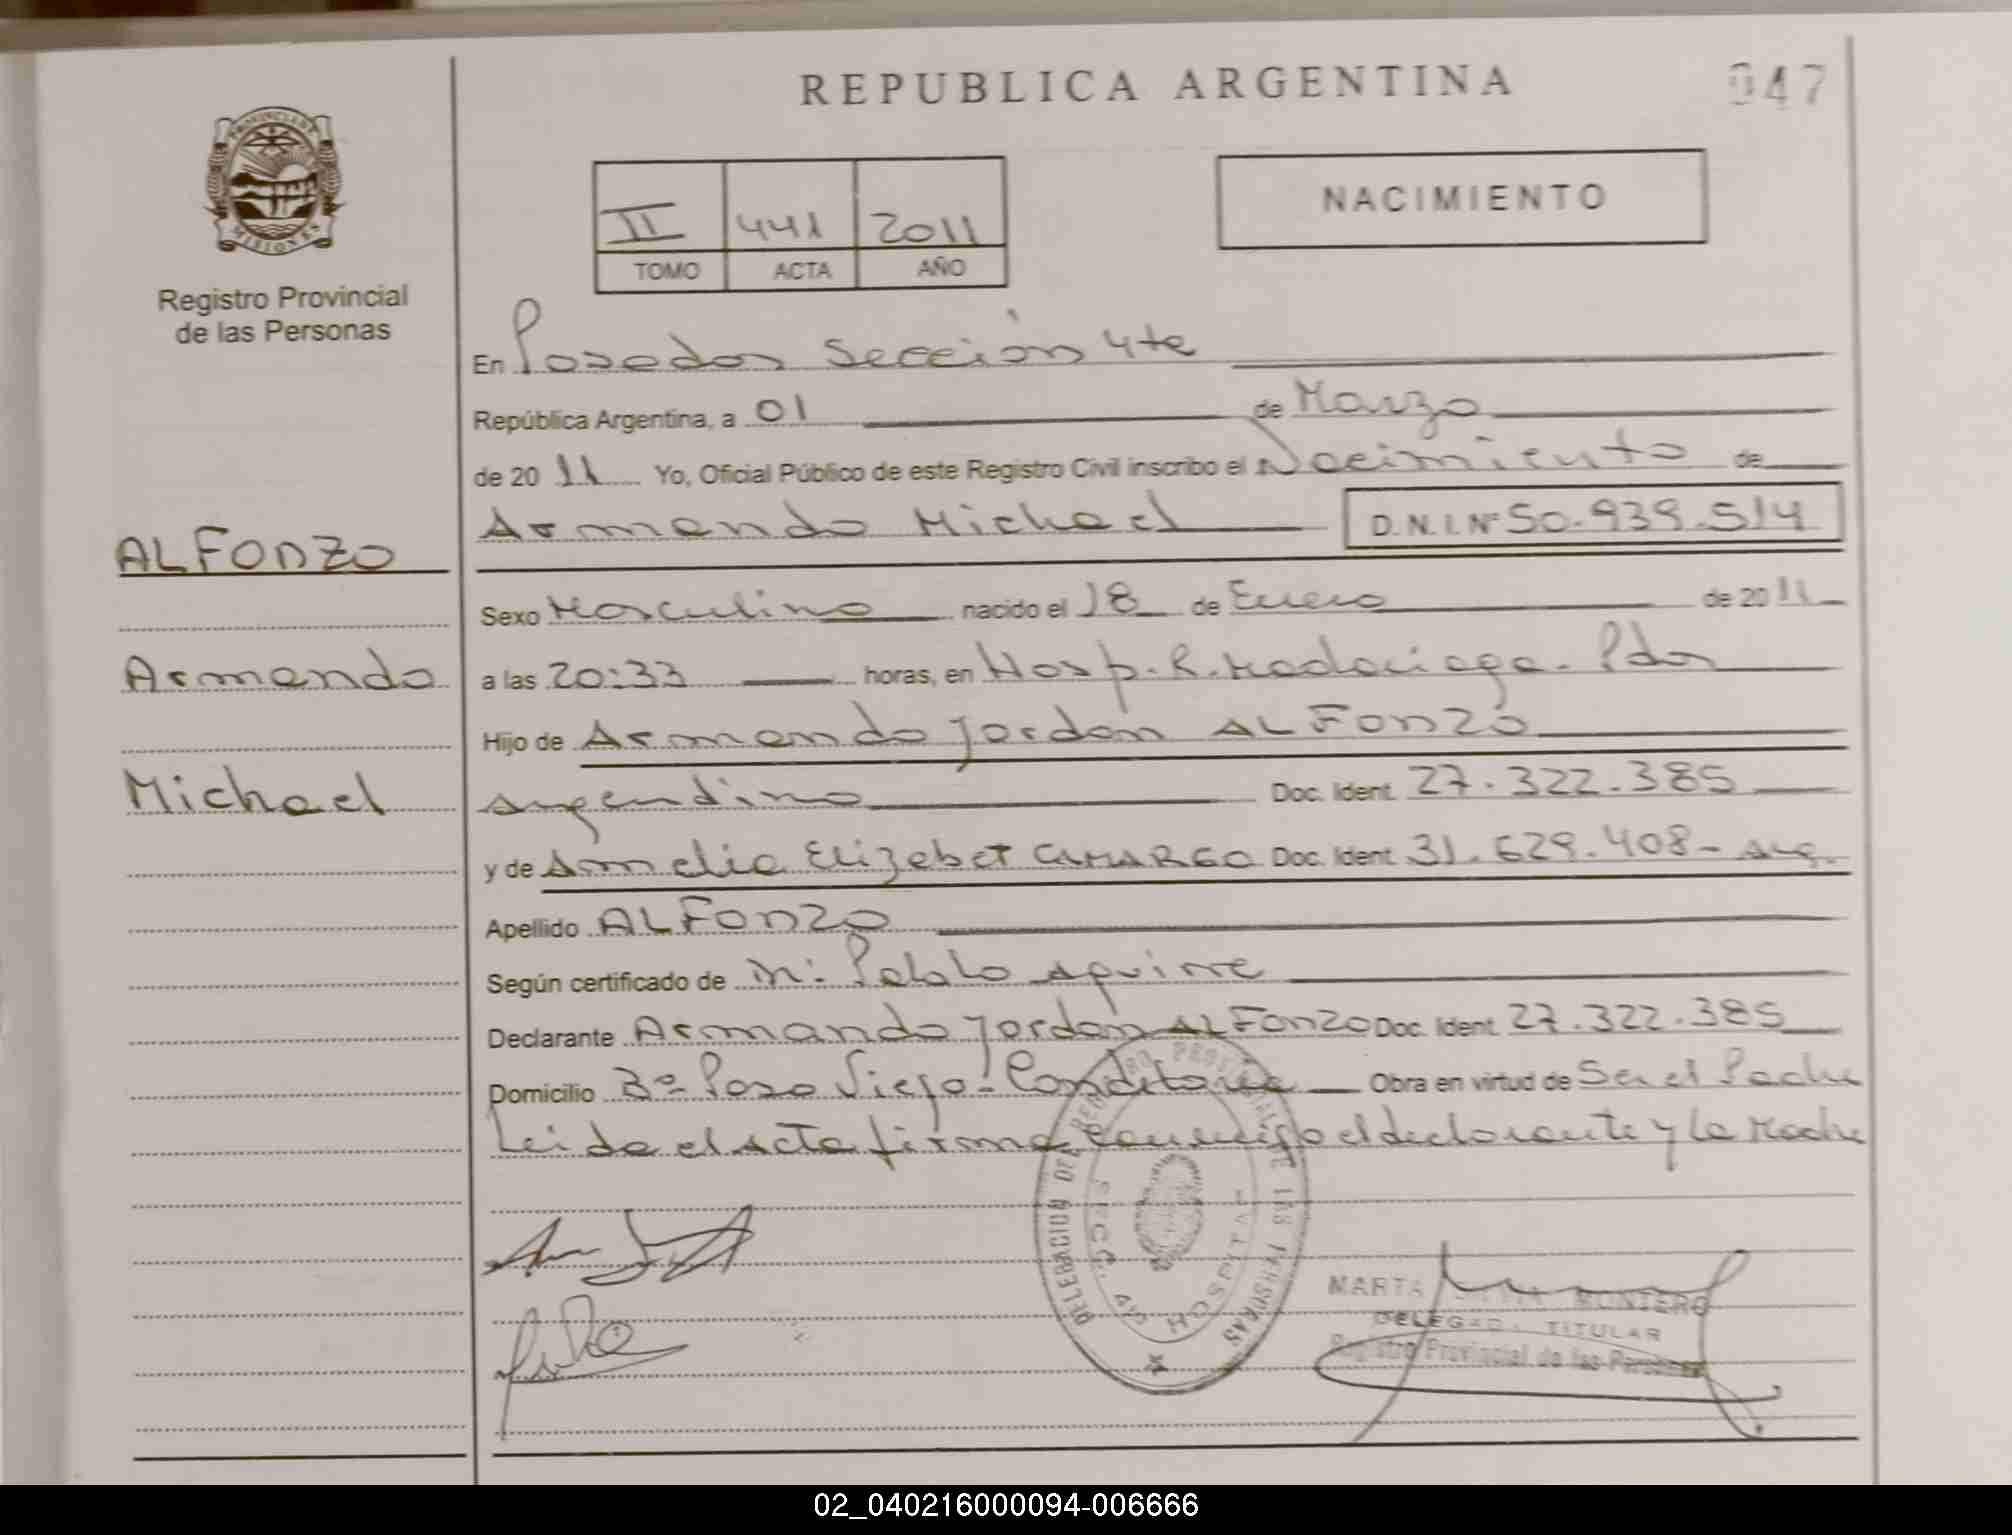 REPUBLICA ARGENTINA
047
PROVINCIA DE
MISIONES
Registro Provincial
de las Personas
II 441 2011
TOMO ACTA AÑO
NACIMIENTO
En Posadas Sección 4ta
República Argentina, a 01 de Marzo
de 20 11 Yo, Oficial Público de este Registro Civil inscribo el Nacimiento de
ALFONZO
Armando Michael D.N.I. Nº 50.939.514
Sexo Masculino nacido el 18 de Enero de 20 11
Armando
a las 20:33 horas, en Hosp. R. Madariaga - Pdas
Hijo de Armando Jordan ALFONZO
Michael
argentino Doc. Ident. 27.322.385
y de Amelia Elizabet CAMARGO Doc. Ident. 31.629.408 - arg.
Apellido ALFONZO
Según certificado de Dr. Pablo Aguirre
Declarante Armando Jordan ALFONZO Doc. Ident. 27.322.385
Domicilio Bº Poso Viejo - Candelaria Obra en virtud de Ser el Padre
Leida el acta firma conmigo el declarante y la Madre
DELEGACION DEL REGISTRO PROVINCIAL DE LAS PERSONAS
SECC. 4ta HOSPITAL
MARTA MONTERO
DELEGADA TITULAR
Registro Provincial de las Personas
02_040216000094-006666